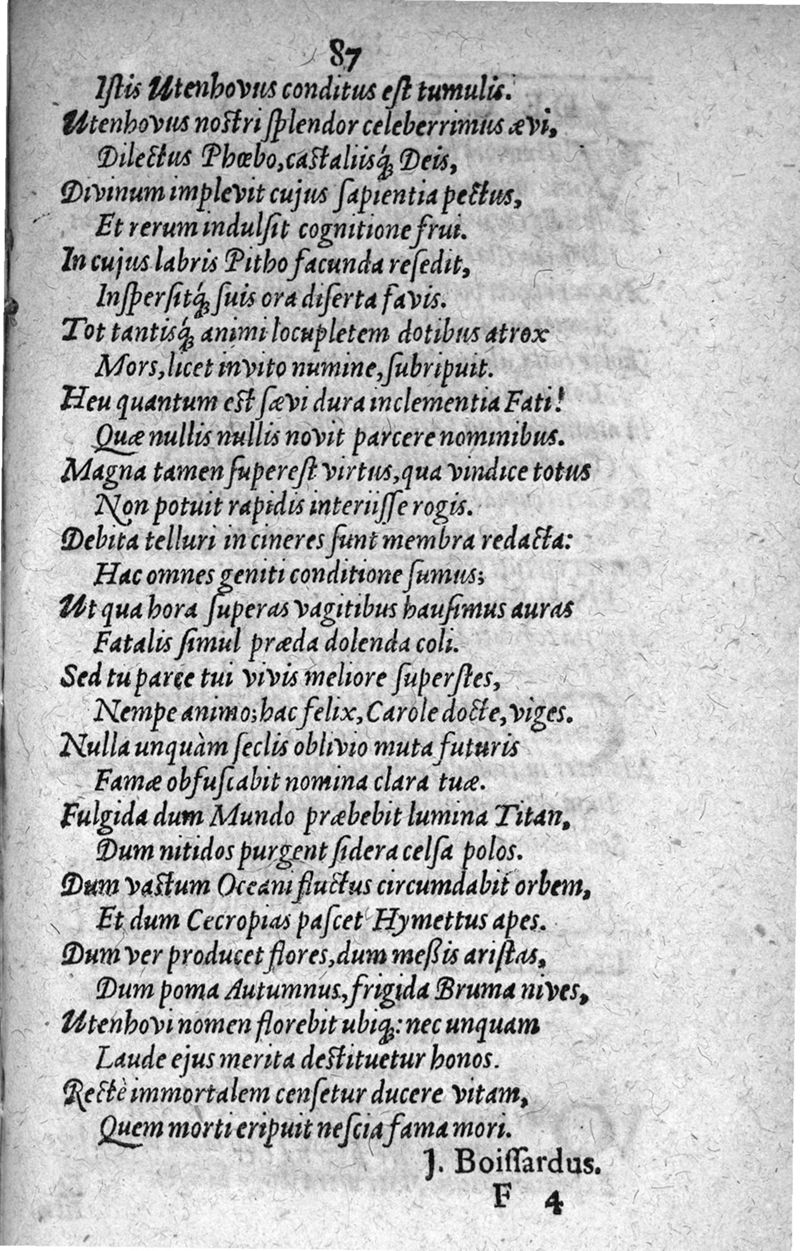 87
Istis Utenhovus conditus est tumulis.
Utenhovus nostri splendor celeberrimus ævi,
Dilectus Phœbo, castaliisq́; Deis,
Divinum implevit cujus sapientia pectus,
Et rerum indulsit cognitione frui.
In cujus labris Pitho facunda resedit,
Inspersitq́; suis ora diserta favis.
Tot tantisq́; animi locupletem dotibus atrox
Mors, licet invito numine, subripuit.
Heu quantum est sævi dura inclementia Fati!
Quæ nullis nullis novit parcere nominibus.
Magna tamen superest virtus, qua vindice totus
Non potuit rapidis interiisse rogis.
Debita telluri in cineres sunt membra redacta:
Hac omnes geniti conditione sumus;
Ut qua hora superas vagitibus hausimus auras
Fatalis simul præda dolenda coli.
Sed tu parte tui vivis meliore superstes,
Nempe animo; hac felix, Carole docte, viges.
Nulla unquàm seclis oblivio muta futuris
Famæ obfuscabit nomina clara tuæ.
Fulgida dum Mundo præbebit lumina Titan,
Dum nitidos purgent sidera celsa polos.
Dum vastum Oceani fluctus circumdabit orbem,
Et dum Cecropias pascet Hymettus apes.
Dum ver producet flores, dum messis aristas,
Dum poma Autumnus, frigida Bruma nives,
Utenhovi nomen florebit ubiq́;: nec unquam
Laude ejus merita destituetur honos.
Rectè immortalem censetur ducere vitam,
Quem morti eripuit nescia fama mori.
J. Boissardus.
F 4